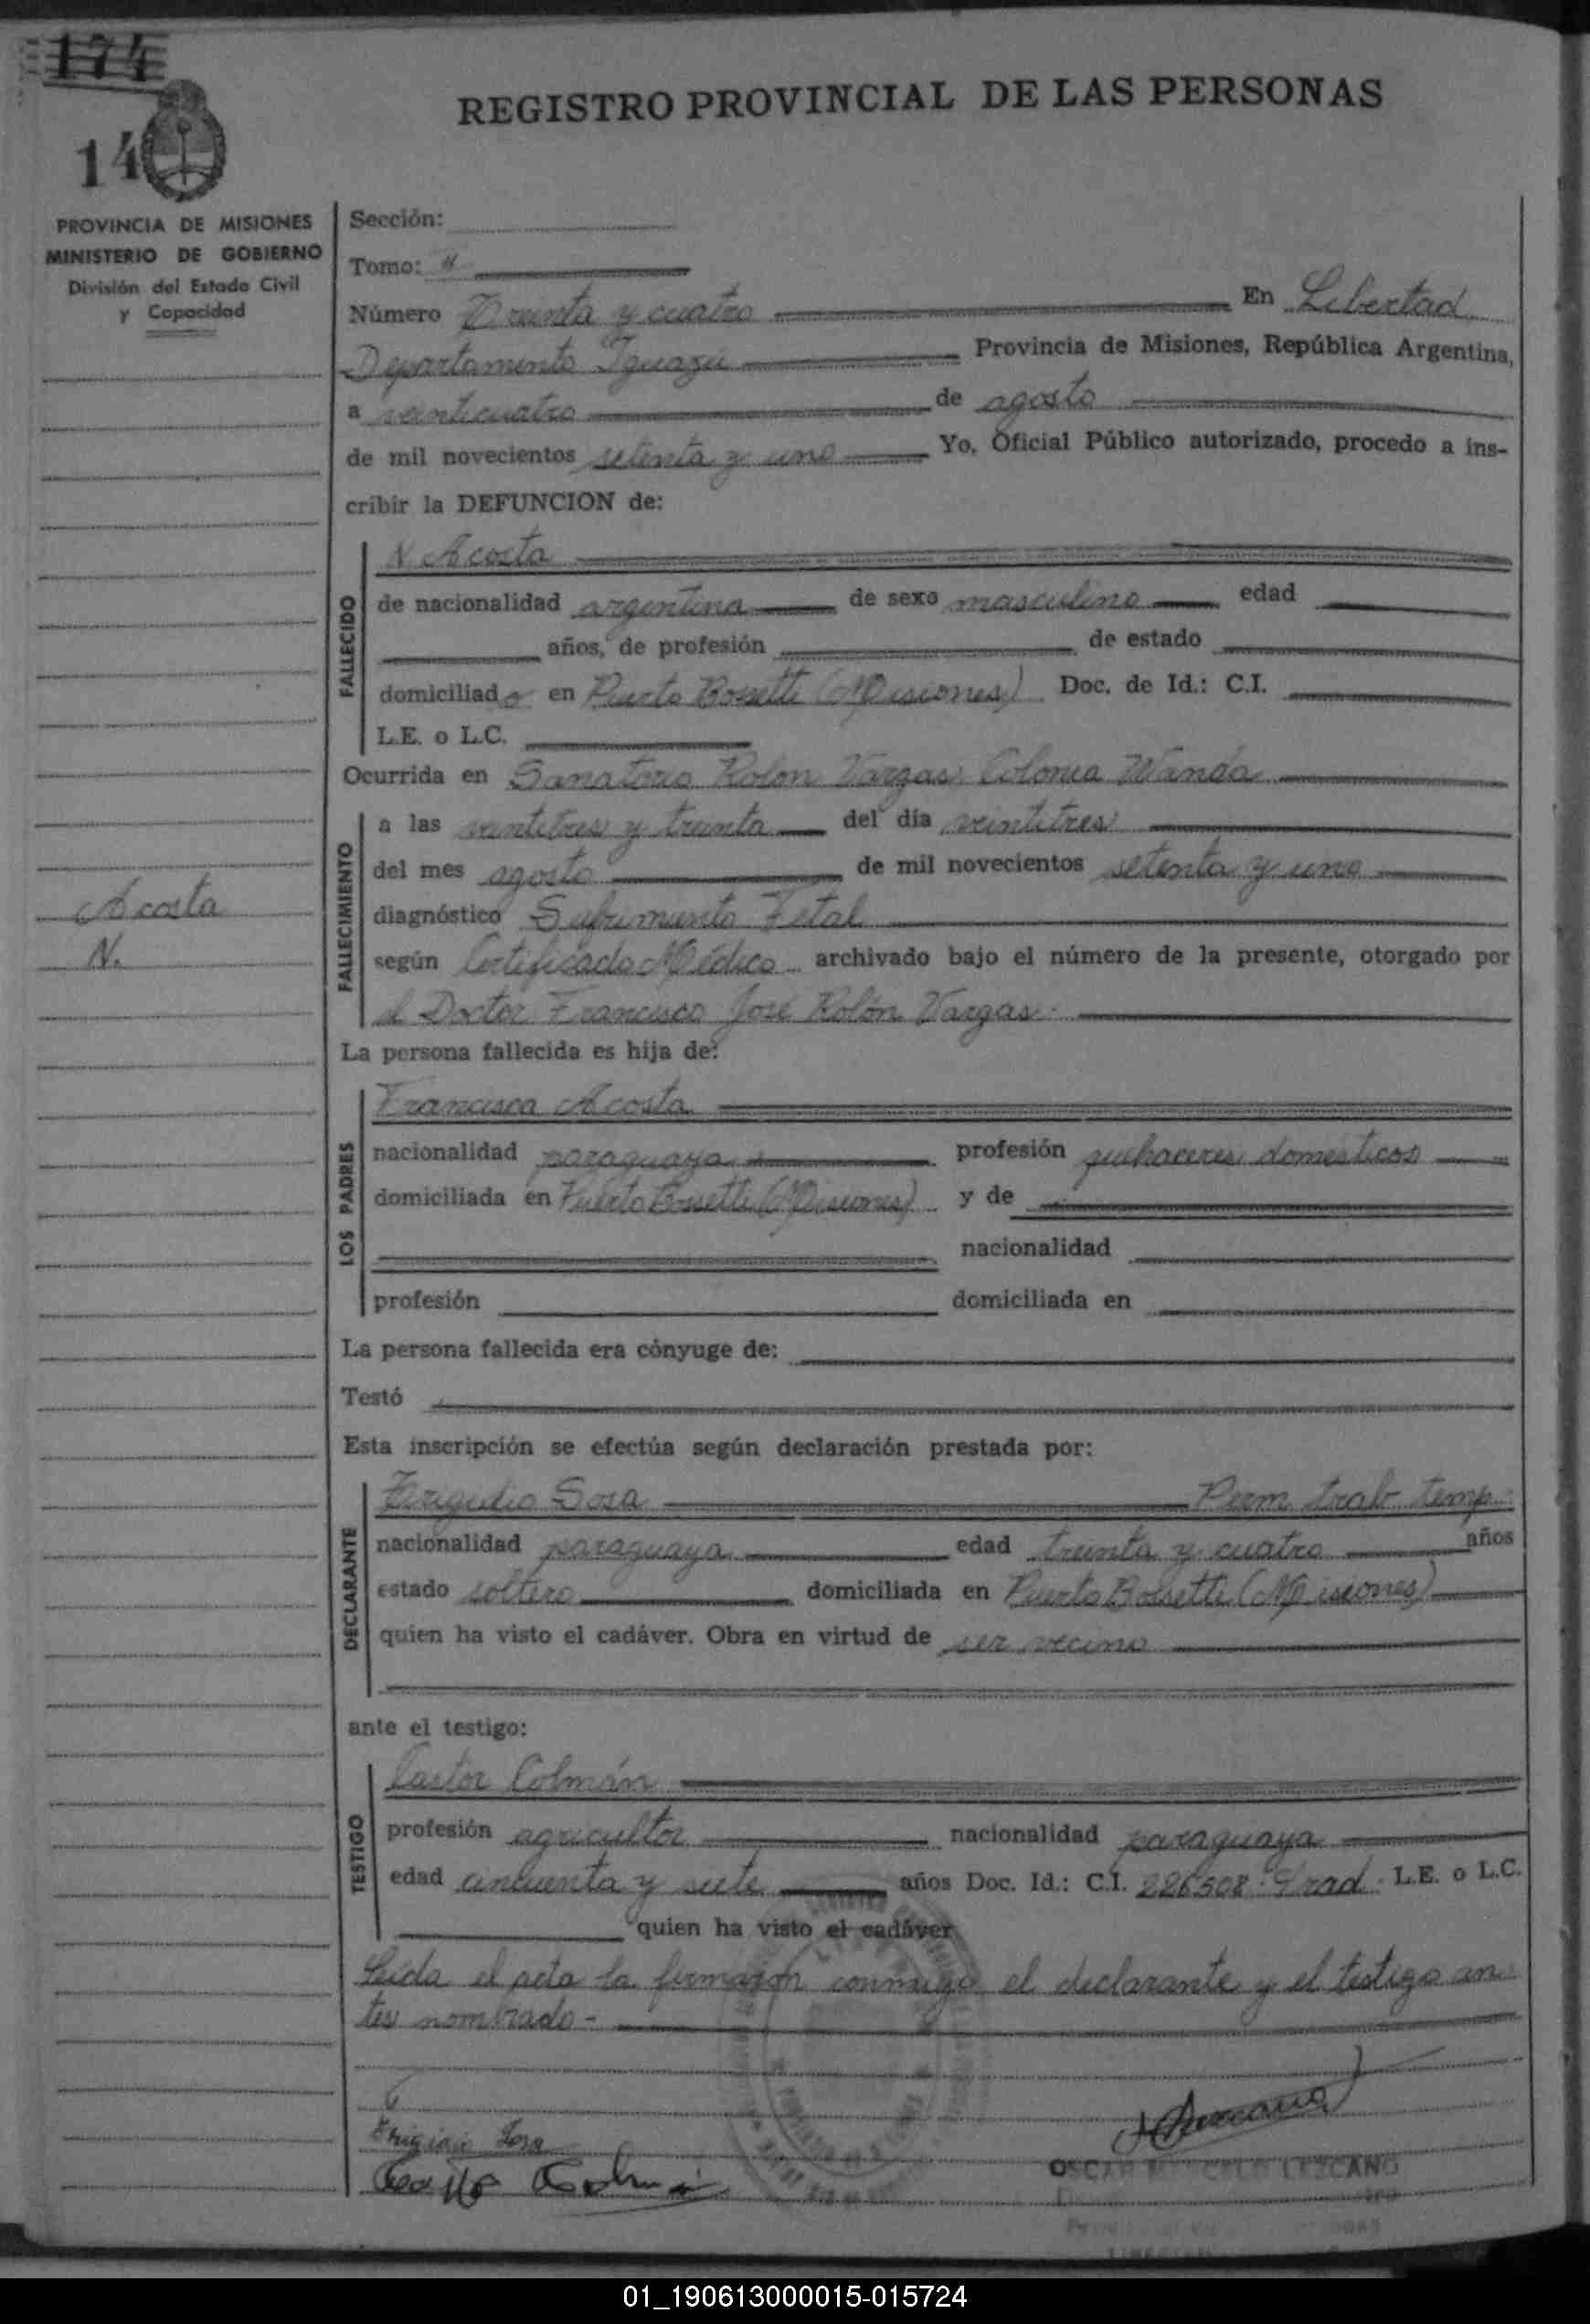 174
14
REGISTRO PROVINCIAL DE LAS PERSONAS
PROVINCIA DE MISIONES
MINISTERIO DE GOBIERNO
División del Estado Civil
y Capacidad
Acosta
N.
Sección:
Tomo: II
Número Treinta y cuatro En Libertad
Departamento Iguazú Provincia de Misiones, República Argentina,
a veinticuatro de agosto
de mil novecientos setenta y uno Yo, Oficial Público autorizado, procedo a ins-
cribir la DEFUNCION de:
FALLECIDO
N. Acosta
de nacionalidad argentina de sexo masculino edad
años, de profesión de estado
domiciliado en Puerto Bossetti (Misiones) Doc. de Id.: C.I.
L.E. o L.C.
Ocurrida en Sanatorio Rolon Vargas Colonia Wanda
FALLECIMIENTO
a las veintitres y treinta del día veintitres
del mes agosto de mil novecientos setenta y uno
diagnóstico Sufrimiento Fetal
según Certificado Médico archivado bajo el número de la presente, otorgado por
el Doctor Francisco José Rolón Vargas.
La persona fallecida es hija de:
LOS PADRES
Francisca Acosta
nacionalidad paraguaya profesión quehaceres domésticos
domiciliada en Puerto Bossetti (Misiones) y de
nacionalidad
profesión domiciliada en
La persona fallecida era cónyuge de:
Testó
Esta inscripción se efectúa según declaración prestada por:
DECLARANTE
Sosa Perm. trab. temp.
nacionalidad paraguaya edad treinta y cuatro años
estado soltero domiciliada en Puerto Bossetti (Misiones)
quien ha visto el cadáver. Obra en virtud de ser vecino
ante el testigo:
TESTIGO
Castor Colmán
profesión agricultor nacionalidad paraguaya
edad cincuenta y siete años Doc. Id.: C.I. 226508 L.E. o L.C.
quien ha visto el cadáver
Leida el acta la firmaron conmigo el declarante y el testigo an-
tes nombrado -
Sosa
OSCAR MARCELO LEZCANO
01_190613000015-015724